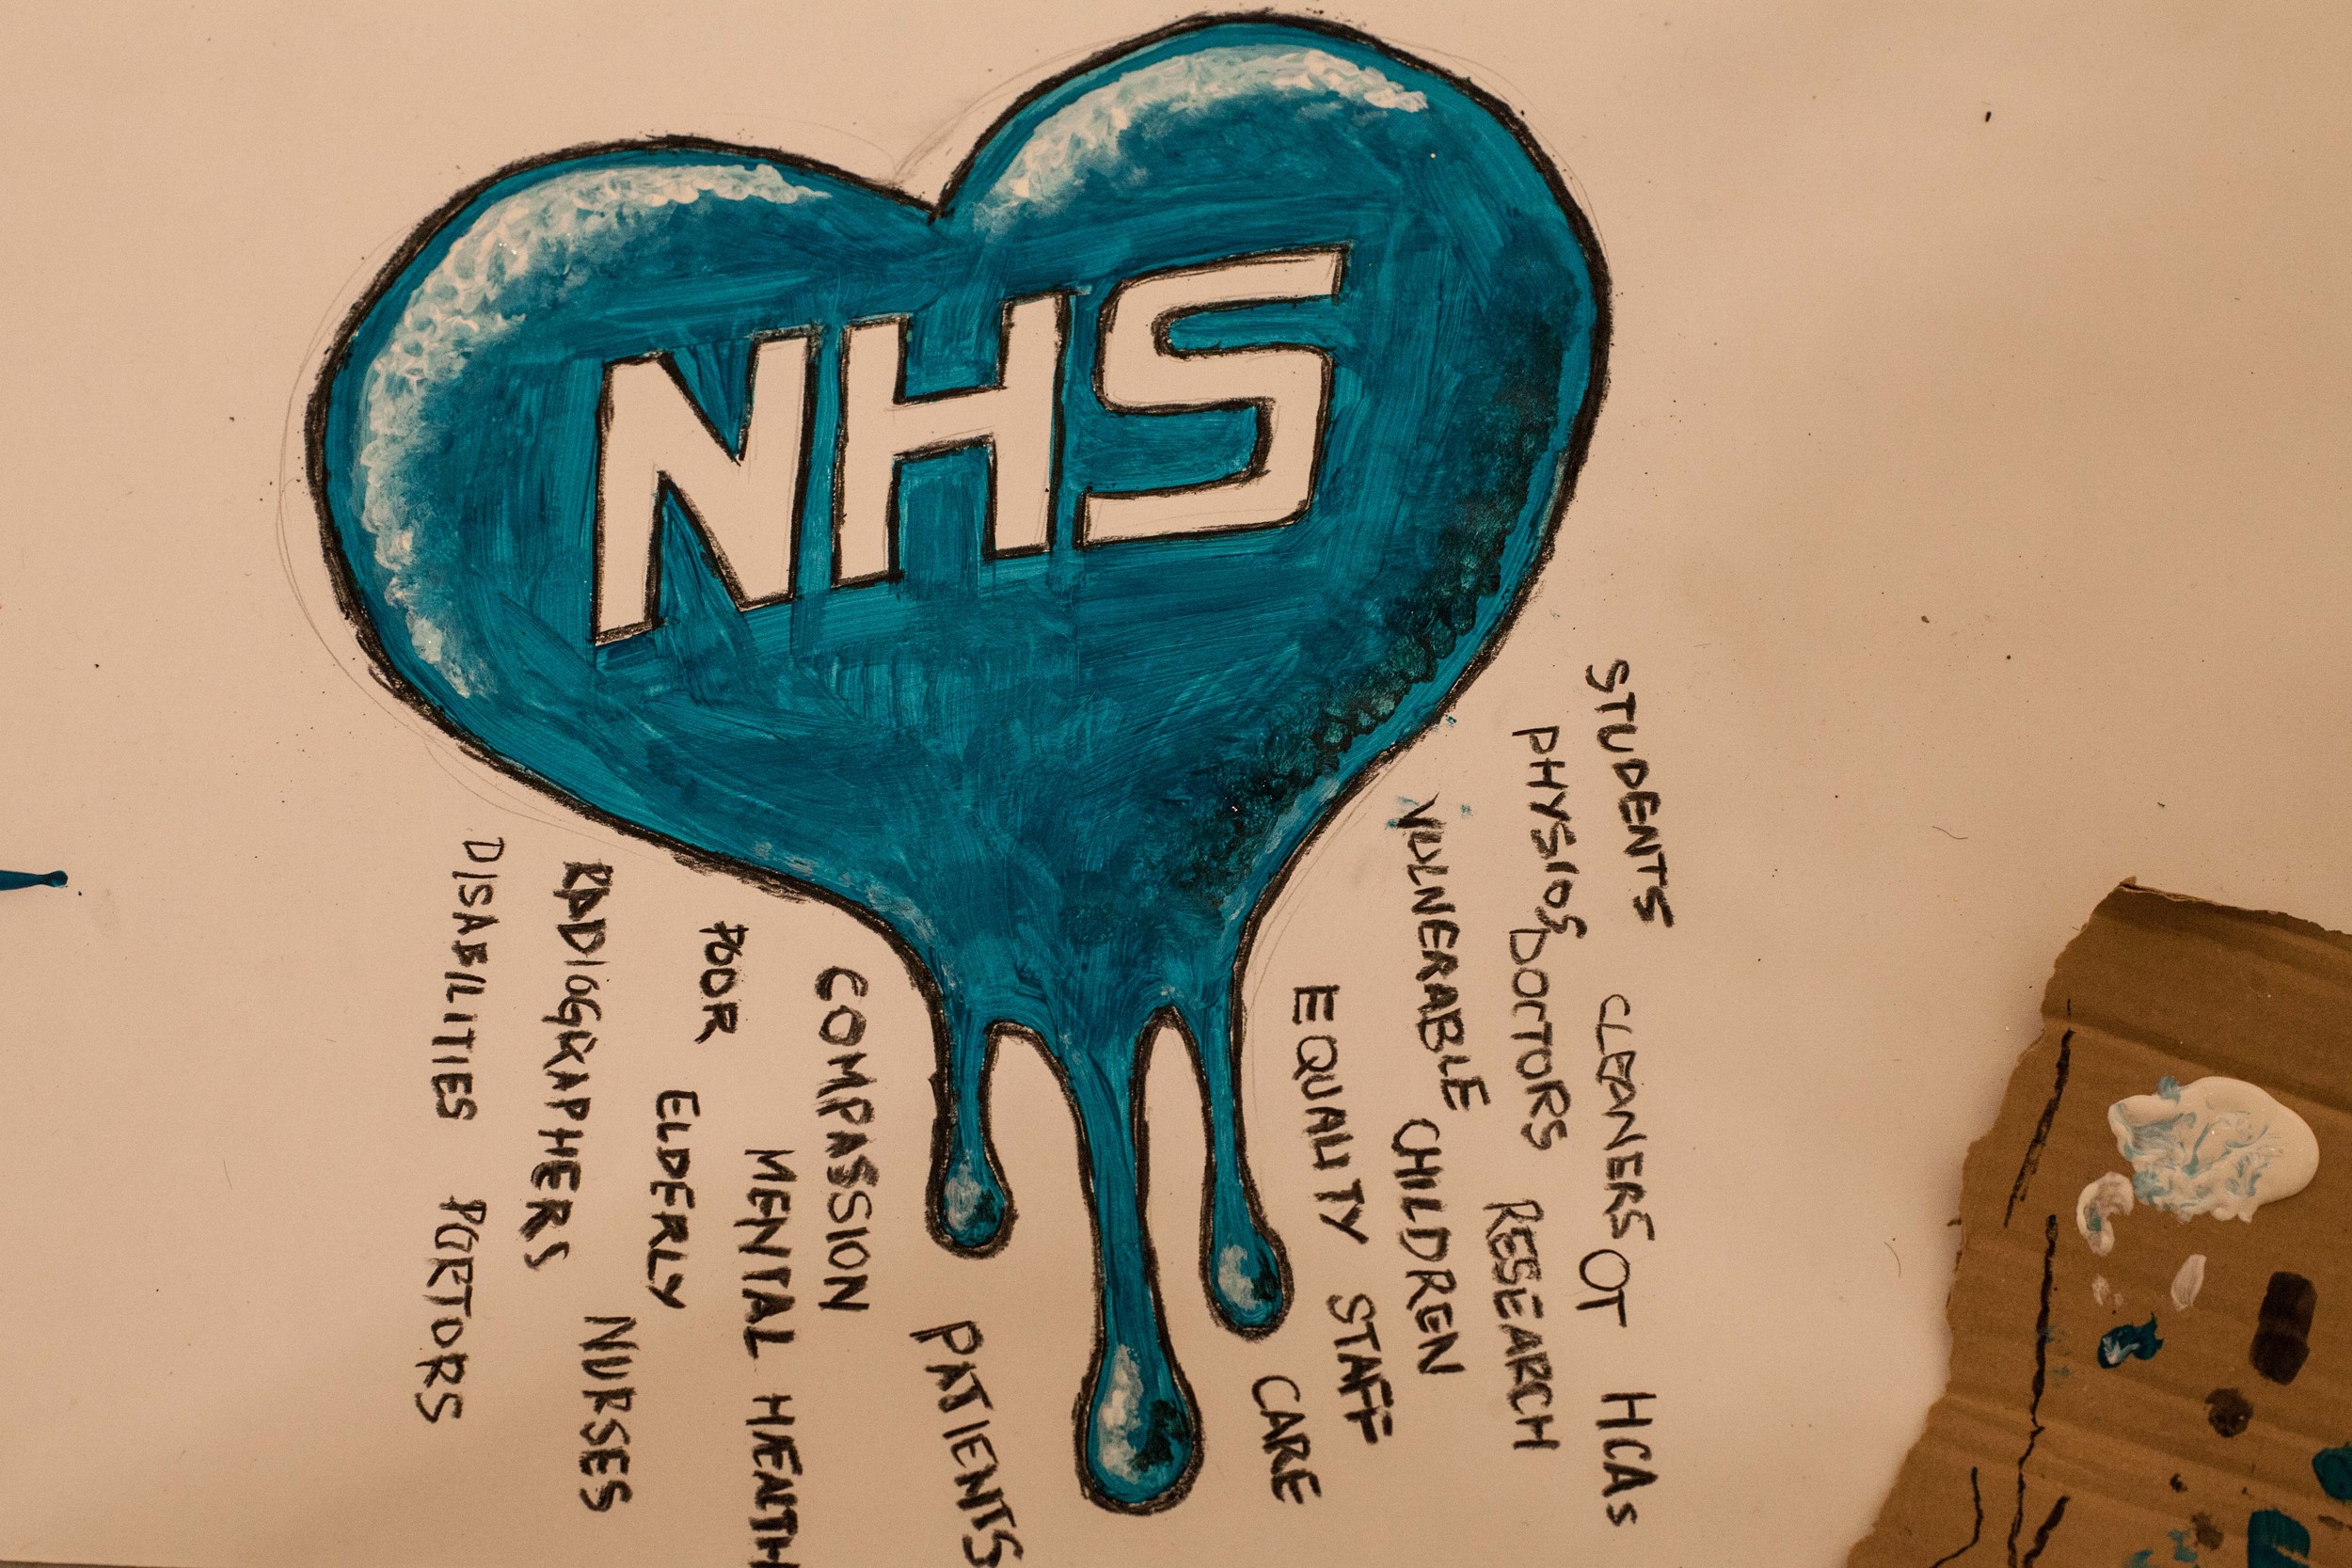 NHS
DISABILITIES PORTORS
RADIOGRAPHERS
NURSES
POOR
ELDERLY
MENTAL HEALTH
COMPASSION
PATIENTS
EQUALITY STAFF
CARE
VULNERABLE CHILDREN
PHYSIOS DOCTORS RESEARCH
STUDENTS CLEANERS OT HCAs